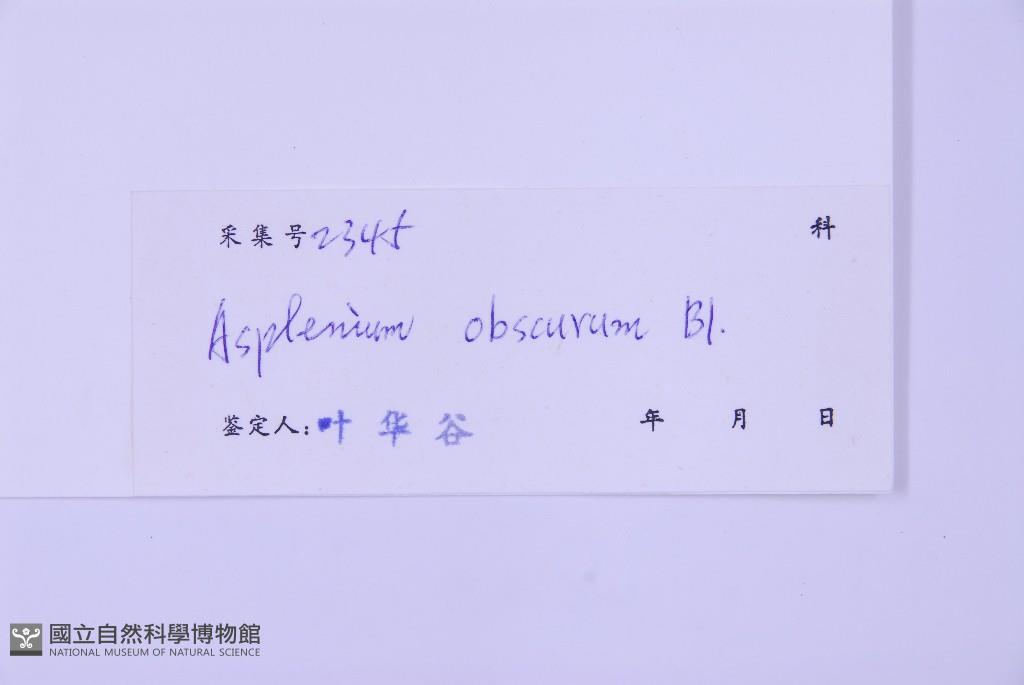 采集号2345 科
Asplenium obscurum Bl.
鉴定人:叶华谷 年 月 日
國立自然科學博物館
NATIONAL MUSEUM OF NATURAL SCIENCE